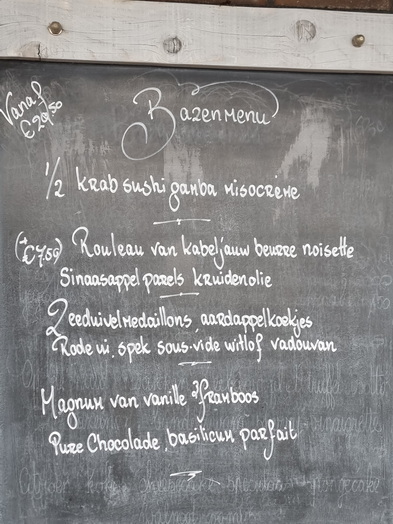 Vanaf
€29,50
Bazenmenu
1/2 krab sushi gamba misocrème
(+€7,50) Rouleau van kabeljauw beurre noisette
Sinaasappel parels kruidenolie
Zeeduivelmedaillons, aardappelkoekjes
Rode ui, spek sous-vide witlof vadouvan
Magnum van vanille & framboos
Pure Chocolade, basilicum parfait